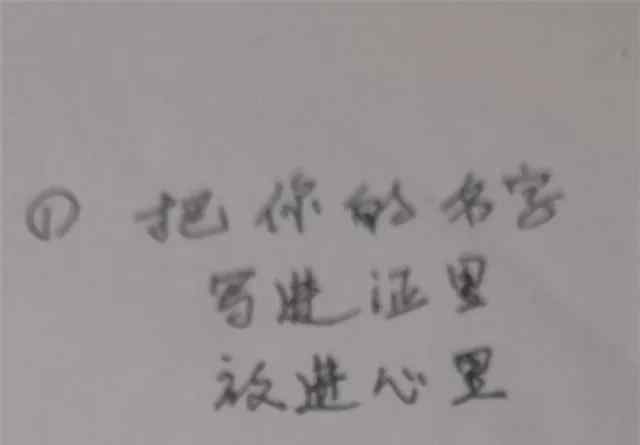 ① 把你的名字
写进证里
放进心里